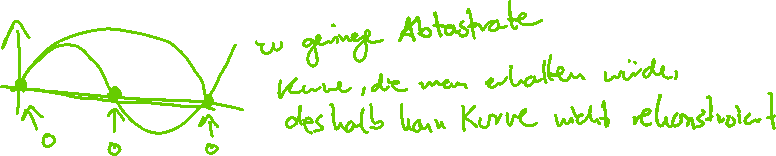 zu geringe Abtastrate
Kurve, die man erhalten würde,
deshalb kann Kurve nicht rekonstruiert
0 0 0